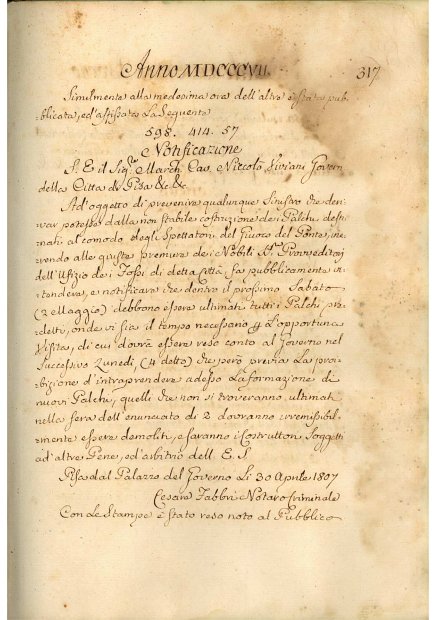 Anno MDCCCVII.
317
Similmente alla medesima ora dell'altra è stata pub-
blicata, ed'affissata La Seguente
598. 414. 57
Notificazione
S. E il Sig.r March. Cav. Niccolò Viviani Govern
della Città di Pisa &c. &c.
Ad'oggetto di prevenire qualunque Sinistro che deri-
var potesse dalla non stabile costruzione dei Palchi desti-
nati al comodo degli Spettatori del Giuoco del Ponte, ine-
rendo alle giuste premure dei Nobili SS.ri Provveditori
dell'Ufizio dei Fossi di detta Città, fa pubblicamente in-
tendere, e notificare che dentro il prossimo Sabato
(2 Maggio) debbono essere ultimati tutti i Palchi pre-
detti, onde vi sia il tempo necessario p L'opportuna
Visita, di cui dovrà essere reso conto al Governo nel
Successivo Lunedì, (4 detto) che però previa La proi-
bizione d'intraprendere adesso La formazione di
nuovi Palchi, quelli che non si troveranno ultimati
nella sera dell'enunciato dì 2 dovranno irremissibil-
mente essere demoliti, e saranno i Costruttori Soggetti
ad'altre Pene, ed'arbitrio dell E. S.
Pisa dal Palazzo del Governo Li 30 Aprile 1807
Cesare Fabbri Notaro Criminale
Con Le Stampe è Stato reso noto al Pubblico